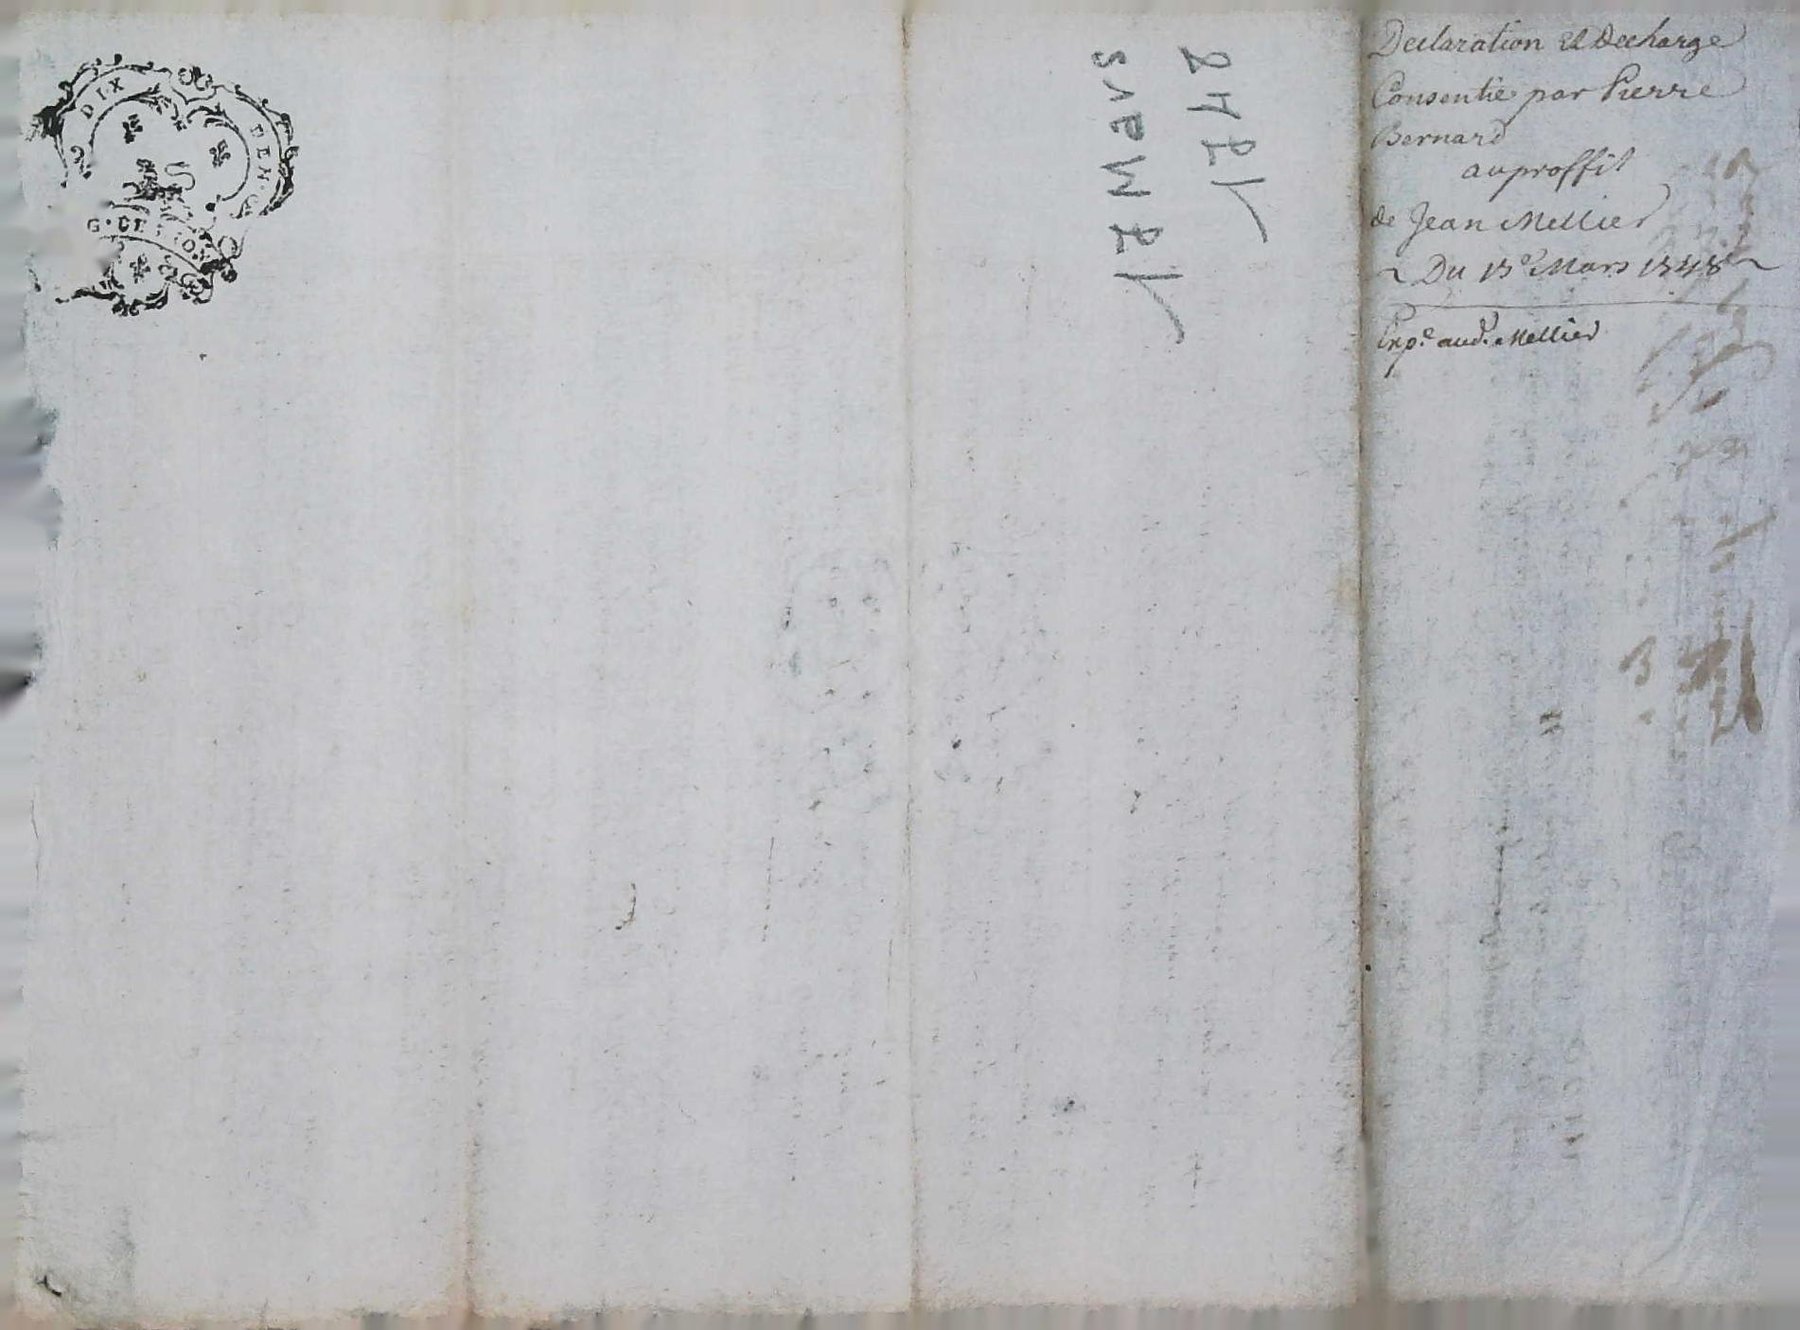 DIX DEN.
G. DE LYON.
17 Mars
1748
Declaration et Decharge
Consentie par Pierre
Bernard
au proffit
de Jean Mellier
~ Du 17e Mars 1748 ~
Exp.e aud. Mellier